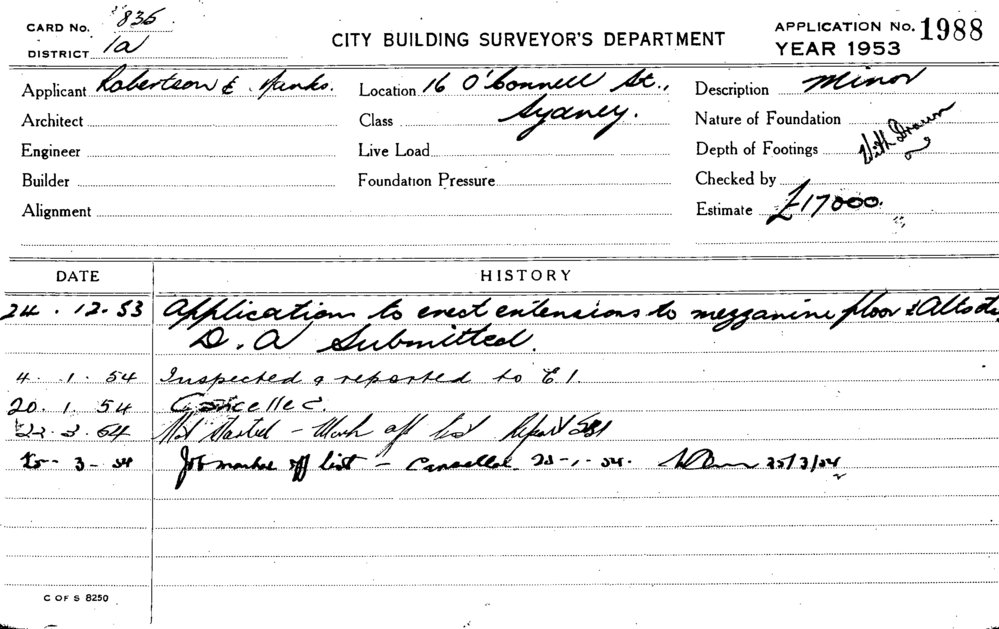 CARD No. 835
DISTRICT 1a
CITY BUILDING SURVEYOR'S DEPARTMENT
APPLICATION No. 1988
YEAR 1953
Applicant Robertson & Hanks.
Location 16 O'Connell St.,
Sydney.
Description Minor
Architect
Class
Nature of Foundation
Engineer
Live Load
Depth of Footings
With Drawn
Builder
Foundation Pressure
Checked by
Alignment
Estimate £17000.
DATE HISTORY
24.12.53 Application to erect extensions to mezzanine floor &
D.A Submitted.
4.1.54 Inspected & reported to E.I.
20.1.54 Cancelled.
Not started - Mark off list Report
3-54 Job marked off list - Cancelled 1-54. 25/3/54
C OF S 8250